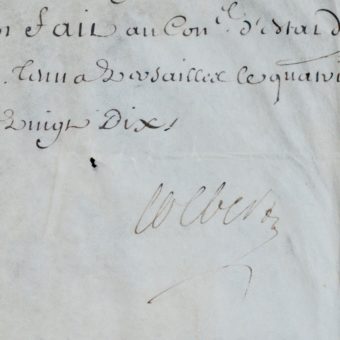 fait au Con.el d'Estat
Tenu a Versailles le quatri
Vingt Dix
Colbert